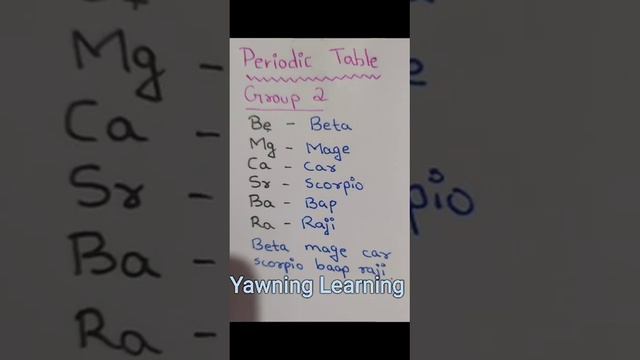 Periodic Table
Group 2
Be - Beta
Mg - Mage
Ca - Car
Sr - Scorpio
Ba - Bap
Ra - Raji
Beta mage car
scorpio baap raji
Yawning Learning
Mg -
Ca -
Sr -
Ba -
Ra -
pio